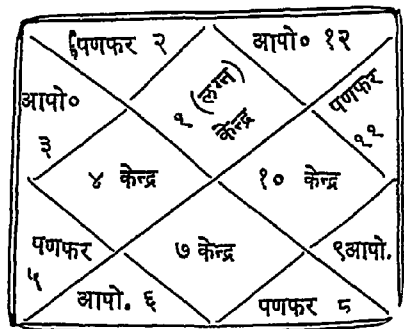 पणफर २
आपो० १२
१ (लग्न)
केन्द्र
आपो०
३
पणफर
११
४ केन्द्र
१० केन्द्र
पणफर
५
७ केन्द्र
९आपो.
आपो. ६
पणफर ८